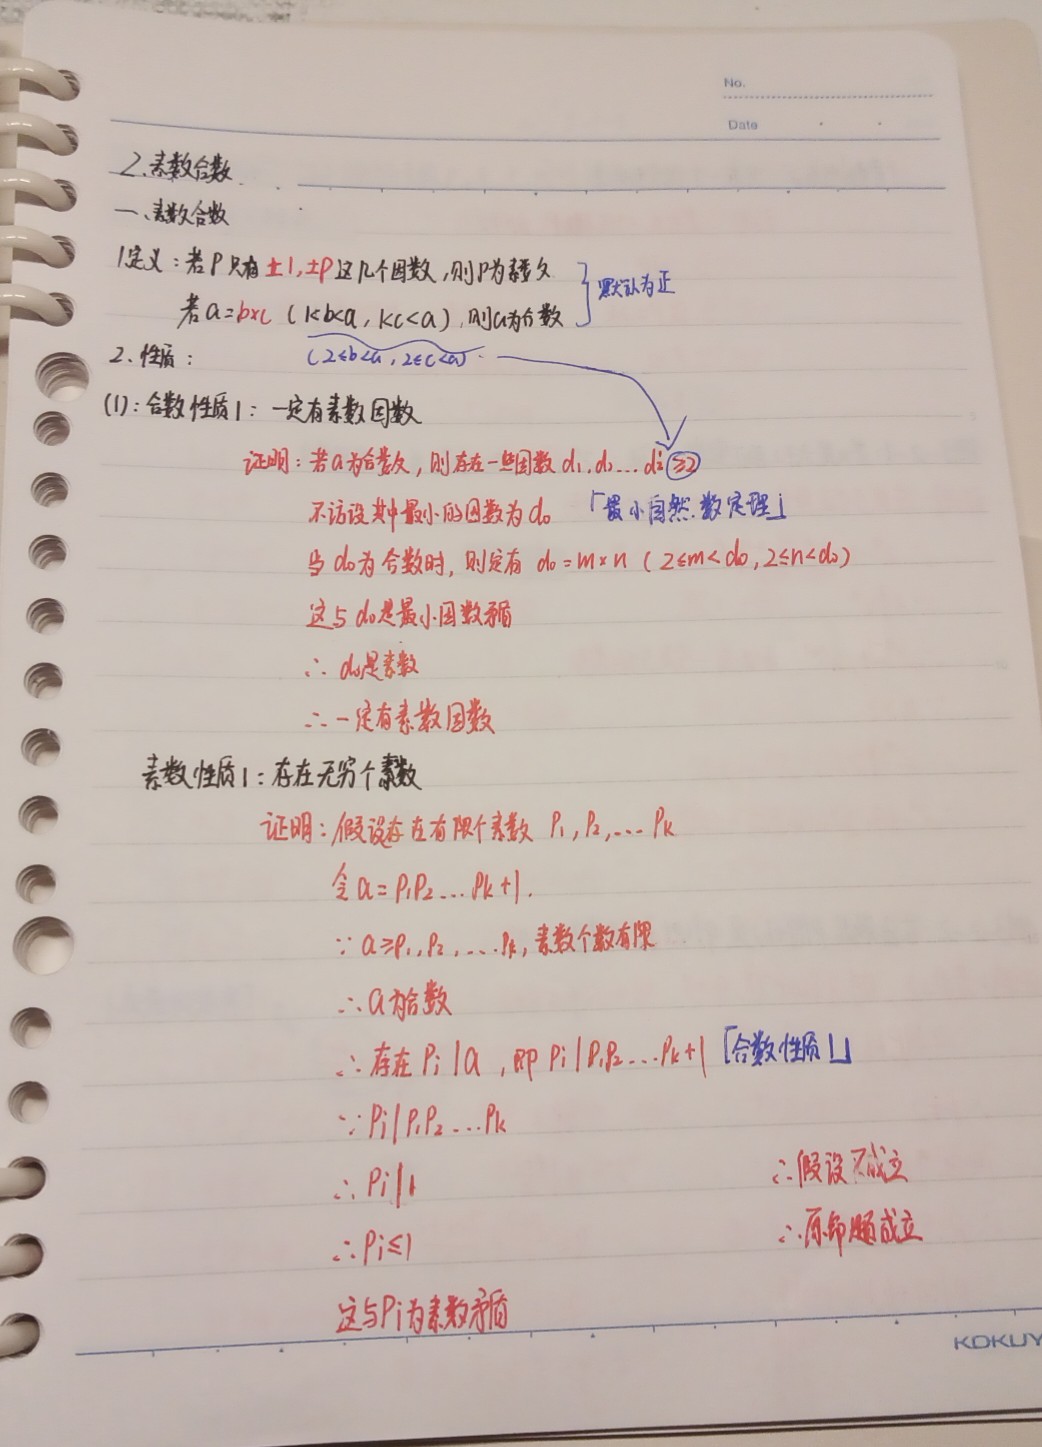 No.
Date
2.素数合数
一、素数合数
1定义：若P只有±1,±P这几个因数,则P为素数
默认为正
若a=b×c (1<b<a, 1<c<a),则a为合数
2.性质：
(2≤b<a, 2≤c<a)
(1):合数性质1：一定有素数因数
证明：若a为合数,则存在一些因数d₁,d₂...di≥2
不访设其中最小的因数为d₀ 「最小自然数定理」
当d₀为合数时,则定有 d₀=m×n (2≤m<d₀,2≤n<d₀)
这与d₀是最小因数矛盾
∴ d₀是素数
∴一定有素数因数
素数性质1：存在无穷个素数
证明：假设存在有限个素数 P₁,P₂,...Pk
令a=P₁P₂...Pk+1.
∵a>P₁,P₂,...Pk,素数个数有限
∴a为合数
∴存在Pi|a,即Pi|P₁P₂...Pk+1「合数性质1」
∵Pi|P₁P₂...Pk
∴Pi|1
∴Pi≤1
这与Pi为素数矛盾
∴假设不成立
∴原命题成立